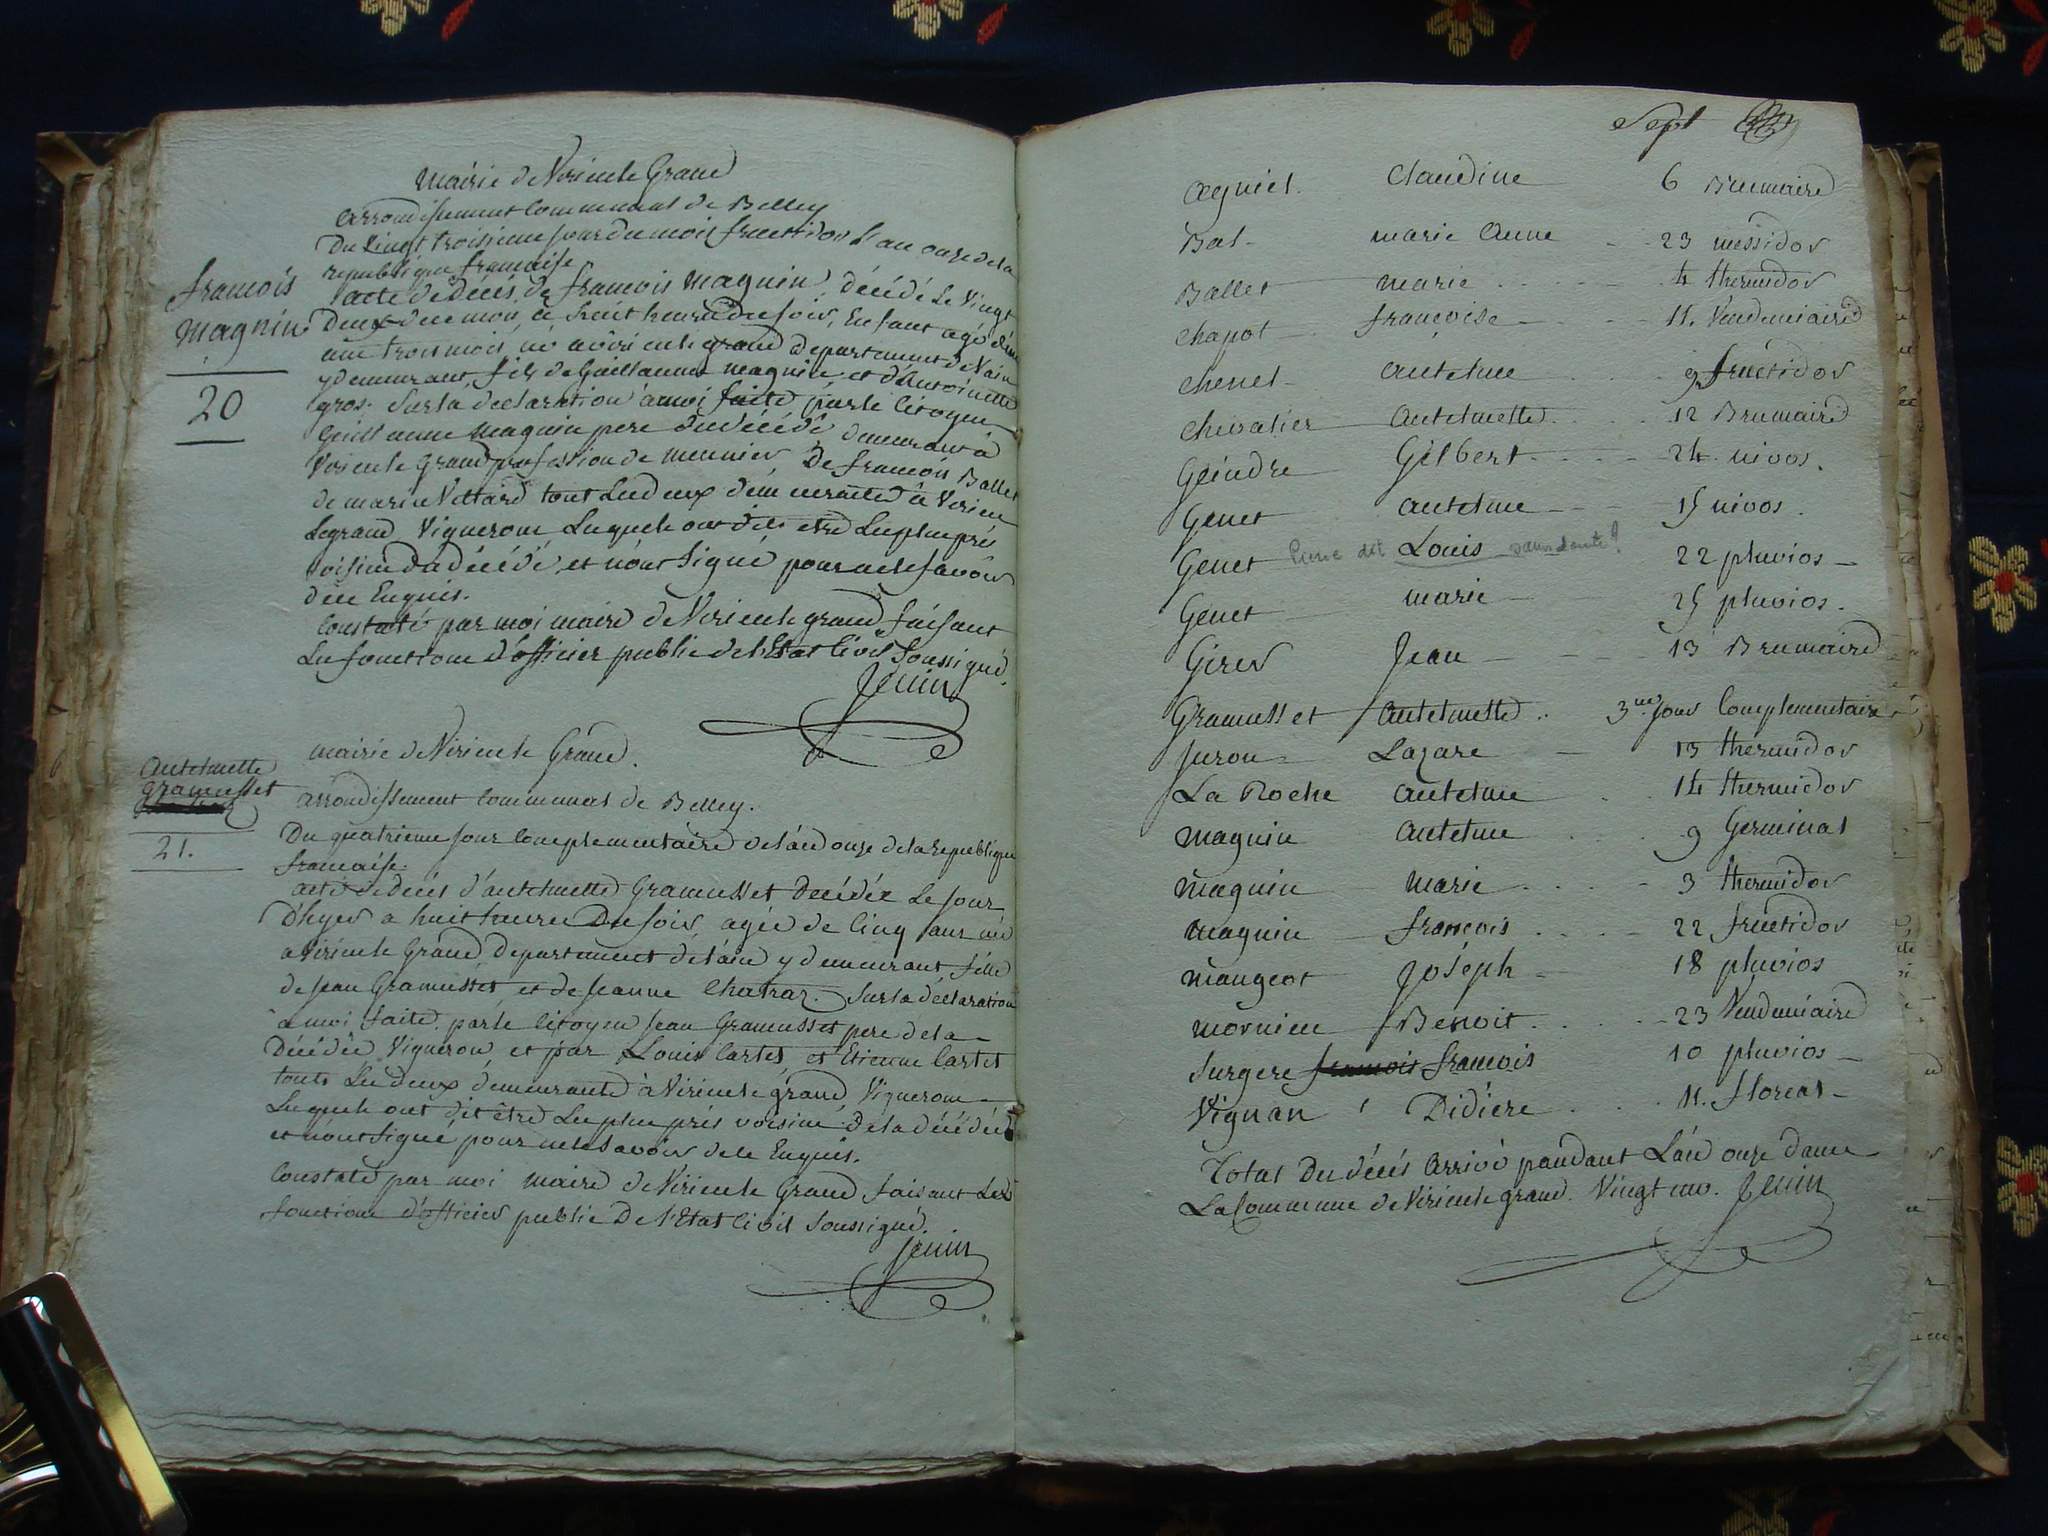 Mairie de Virieu le Grand
arrondissement Communal de Belley
Du Vingt troisieme jour du mois fructidor L'an onze de la
republique francaise
acte de décès de francois Magnin, décédé Le Vingt
Deux du mois, à huit heures du soir, Enfant agé d'un
an trois mois, né à virieu le grand departement de l'ain
y demeurant, fils de Guillaume Magnin et d'Antoinette
gros. Sur la declaration à moi faite par le Citoyen
Guillaume Magnin pere du décédé demeurant à
Virieu le Grand profession de meunier, De francois Ballet
de marin Vettard tout Les deux demeurants à Virieu
Legrand Vignerons Lesquels ont dits etre Les plus près
voisins du décédé, et n'ont signé pour ne le savoir
de ce Enquis.
Constaté par moi maire de Virieu le grand faisant
Les fonctions d'officier public de l'Etat Civil Soussigné.
Jenin
francois
Magnin
20
mairie de Virieu le Grand.
arrondissement Communal de Belley.
Du quatrieme jour Complementaire de l'an onze de la republique
francaise.
acte de décès d'antelmette Gramusset décédée Le jour
D'hyer a huit heures Du soir, agée de Cinq ans née
a Virieu le Grand, departement de l'ain y demeurant, fille
de jean Gramusset, et de jeanne Charraz. Sur la déclaration
a moi faite par le Citoyen jean Gramusset pere de la
Décédée, Vigneron, et par Louis Cartet, et Etienne Cartet
touts Les deux demeurants à Virieu le grand, Vignerons
Lesquels ont dit être Les plus près voisins de la décédée
et n'ont signé pour ne le savoir de ce Enquis.
Constaté par moi maire de Virieu le Grand faisant Les
fonctions d'officier public De l'Etat Civil Soussigné.
Jenin
antelmette
gramusset
21.
Sept
Agniel. Claudine 6 Brumaire
Bal- marie Anne 23 messidor
Ballet marie 4 thermidor
Chapot françoise 11. Vendemiaire
Chenel- antelme 9 fructidor
Chevalier antelmette 12 Brumaire
Geindre Gilbert 24 nivos.
Genet antelme 15 nivos.
Genet Pierre dit Louis sans doute! 22 pluvios
Genet marie 25 pluvios.
Girer Jean 13 Brumaire
Gramusset antelmette 3me jour Complementaire
Juron Lazare 13 thermidor
La Roche antelme 14 thermidor
Magnin antelme 9 Germinal
Magnin Marie 3 thermidor
Magnin françois 22 fructidor
Maugeot Joséph 18 pluvios
Mornieu Benoit 23 Vendemiaire
Surgere francois francois 10 pluvios
Vignan Didiere 11. floreal
Total Du décés Arrivé pandant L'an onze dans
La Commune de Virieu le grand. Vingt un. Jenin